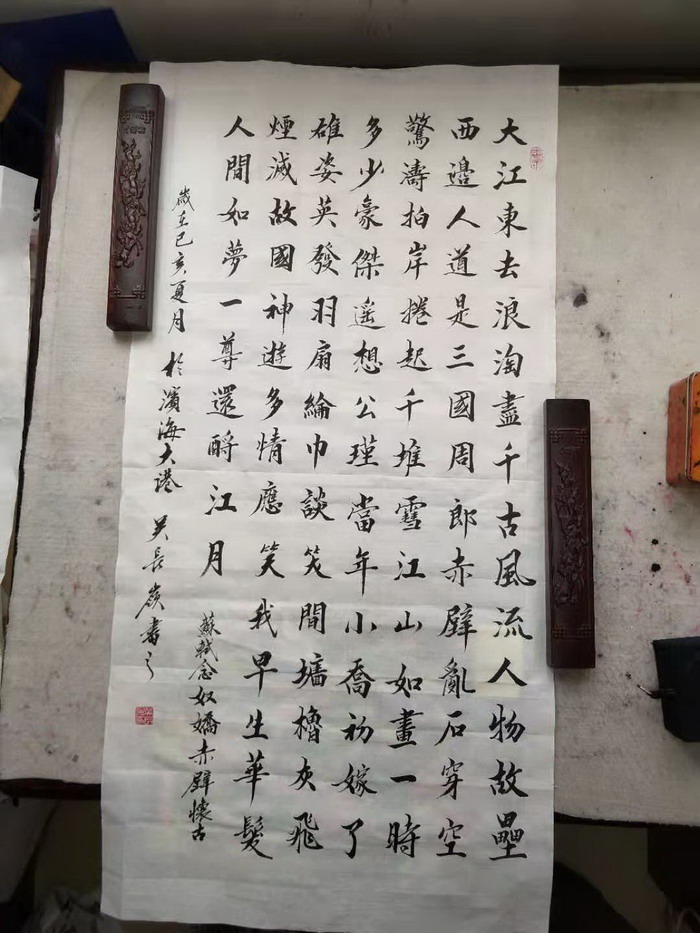 大江東去浪淘盡千古風流人物故壘
西邊人道是三國周郎赤壁亂石穿空
驚濤拍岸捲起千堆雪江山如畫一時
多少豪傑遙想公瑾當年小喬初嫁了
雄姿英發羽扇綸巾談笑間墻櫓灰飛
煙滅故國神遊多情應笑我早生華髮
人間如夢一尊還酹江月
蘇軾念奴嬌赤壁懷古
歲在己亥夏月 於濱海大港 吴長嶺書